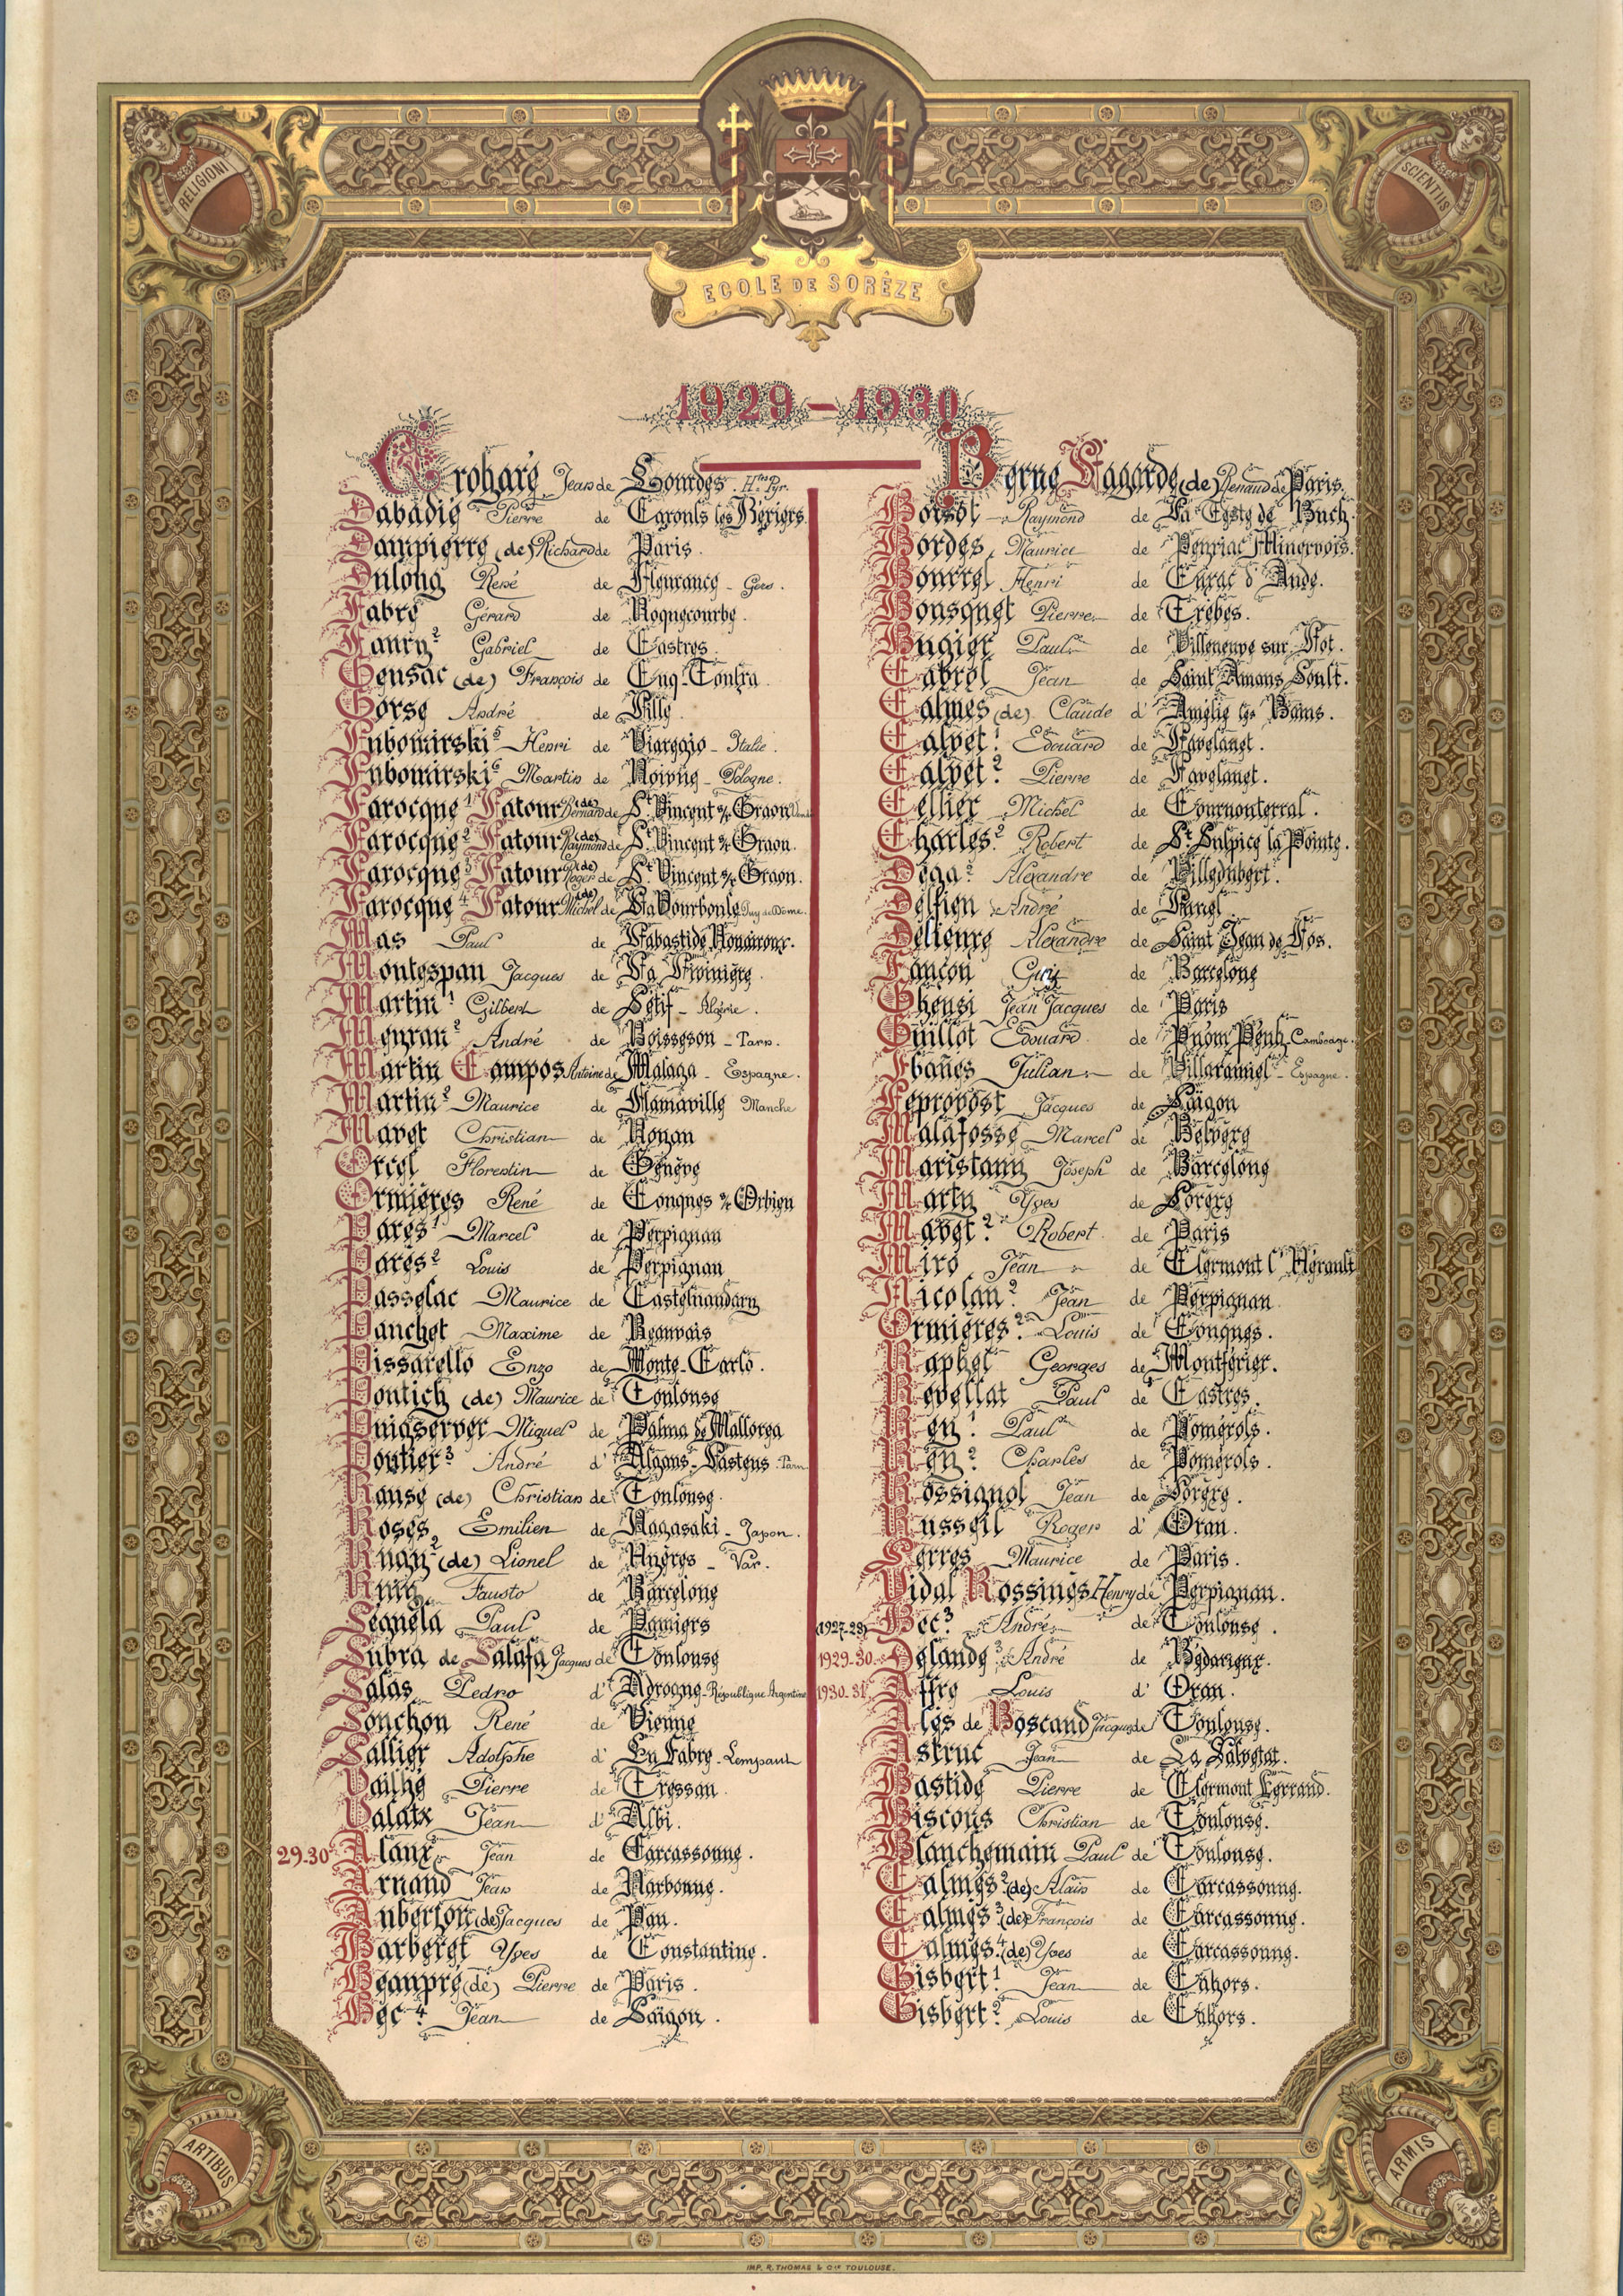 RELIGIONI
SCIENTIIS
ECOLE DE SORÈZE
1929-1930
Crohare Jean de Lourdes. Htes Pyr.
Dabadie Pierre de Cazouls les Béziers
Dampierre (de) Richard de Paris.
Dulong René de Fleurance - Gers.
Fabre Gérard de Roquecourbe.
Faury 2 Gabriel de Castres.
Gensac (de) François de Cuq-Toulza
Gorse André de Lille
Lubomirski 5 Henri de Viareggio - Italie.
Lubomirski 6 Martin de - Pologne.
Larocque 1 Latour (de) Bernard de St Vincent s/r Graon
Larocque 2 Latour (de) Raymond de St Vincent s/r Graon.
Larocque 3 Latour (de) Roger de St Vincent s/r Graon.
Larocque 4 Latour (de) Michel de La Bourboule Puy de Dôme.
Mas Paul de Labastide Rouairoux.
Montespan Jacques de La Livinière.
Martin 1 Gilbert de Sétif - Algérie.
Meyran 2 André de Boisseson - Tarn.
Martin Campos Antoine de Malaga - Espagne.
Martin 2 Maurice de Flamaville Manche
Mavet Christian de Rouen
Orcel Florentin de Genève
Ormières René de Conques s/r Orbieu
Parès 1 Marcel de Perpignan
Parès 2 Louis de Perpignan
Passelac Maurice de Castelnaudary
Panchet Maxime de Beauvais
Pissarello Enzo de Monte-Carlo.
Pontich (de) Maurice de Toulouse
Puigserver Miguel de Palma de Mallorca
Poutier 3 André d' Algans-Lastens. Tarn
Ranse (de) Christian de Toulouse.
Rosès Emilien de Nagasaki - Japon.
Ruay 2 (de) Lionel de Hyères - Var.
Ruiz Fausto de Barcelone
Seguéla Paul de Pamiers
Subra de Salafa Jacques de Toulouse
Salas Pedro d' Adrogue - République Argentine
Souchon René de Vienne
Sallier Adolphe d' En Fabre - Lempaut
Vailhé Pierre de Tressan.
Valatx Jean d' Albi.
29-30 Alaux Jean de Carcassonne.
Arnaud Jean de Narbonne.
Auberjon (de) Jacques de Pau.
Barberet Yves de Constantine.
Beaupré (de) Pierre de Paris.
Bec 4 Jean de Saïgon.
Berne Lagarde (de) Renaud de Paris.
Boisot Raymond de La Teste de Buch.
Bordes Maurice de Peyriac Minervois.
Bourrel Henri de Cuxac d'Aude.
Bousquet Pierre de Trèbes.
Bugier Paul de Villeneuve sur Lot.
Cabrol Jean de Saint Amans Soult.
Calmes (de) Claude d' Amélie les Bains.
Calvet 1 Edouard de Lavelanet.
Calvet 2 Pierre de Lavelanet.
Cellier Michel de Cournonterral.
Charles 2 Robert de St Sulpice la Pointe.
Dega 2 Alexandre de Villedubert.
Delfien André de Lunel
Delieure Alexandre de Saint Jean de Fos.
Fançon Guy de Barcelone
Gheusi Jean Jacques de Paris
Guillot Edouard de Pnom Penh. Cambodge.
Ibañes Julian de Villaramiel - Espagne.
Leprovost Jacques de Saïgon
Malafosse Marcel de Belvèze
Maristany Joseph de Barcelone
Marty Yves de Sorèze
Mavet 2 Robert de Paris
Miro Jean de Clermont l'Hérault
Nicolau 2 Jean de Perpignan
Ormières 2 Louis de Conques.
Raphel Georges de Montferier.
Revellat Paul de Castres.
Rey 1 Paul de Pomérols.
Rey 2 Charles de Pomérols.
Rossignol Jean de Sorèze.
Russeil Roger d' Oran.
Serres Maurice de Paris.
Vidal Rossines Henry de Perpignan.
(1927-28) Bec 3 André de Toulouse.
1929-30 Delande 3 André de Bédarieux.
1930-31 Affre Louis d' Oran.
Alès de Boscaud Jacques de Toulouse.
Astruc Jean de La Salvetat.
Bastide Pierre de Clermont Ferrand.
Biscons Christian de Toulouse.
Blanchemain Paul de Toulouse.
Calmès 2 (de) Alain de Carcassonne.
Calmès 3 (de) François de Carcassonne.
Calmès 4 (de) Yves de Carcassonne.
Gisbert 1 Jean de Cahors.
Gisbert 2 Louis de Cahors.
ARTIBUS
ARMIS
IMP. R. THOMAS & Cie TOULOUSE.